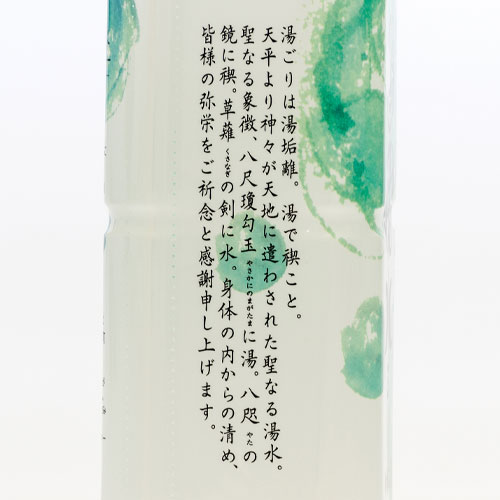 湯ごりは湯垢離。湯で禊こと。
天平より神々が天地に遣わされた聖なる湯水。
聖なる象徴、八尺瓊勾玉やさかにのまがたまに湯。八咫やたの
鏡に禊。草薙くさなぎの剣に水。身体の内からの清め、
皆様の弥栄をご祈念と感謝申し上げます。